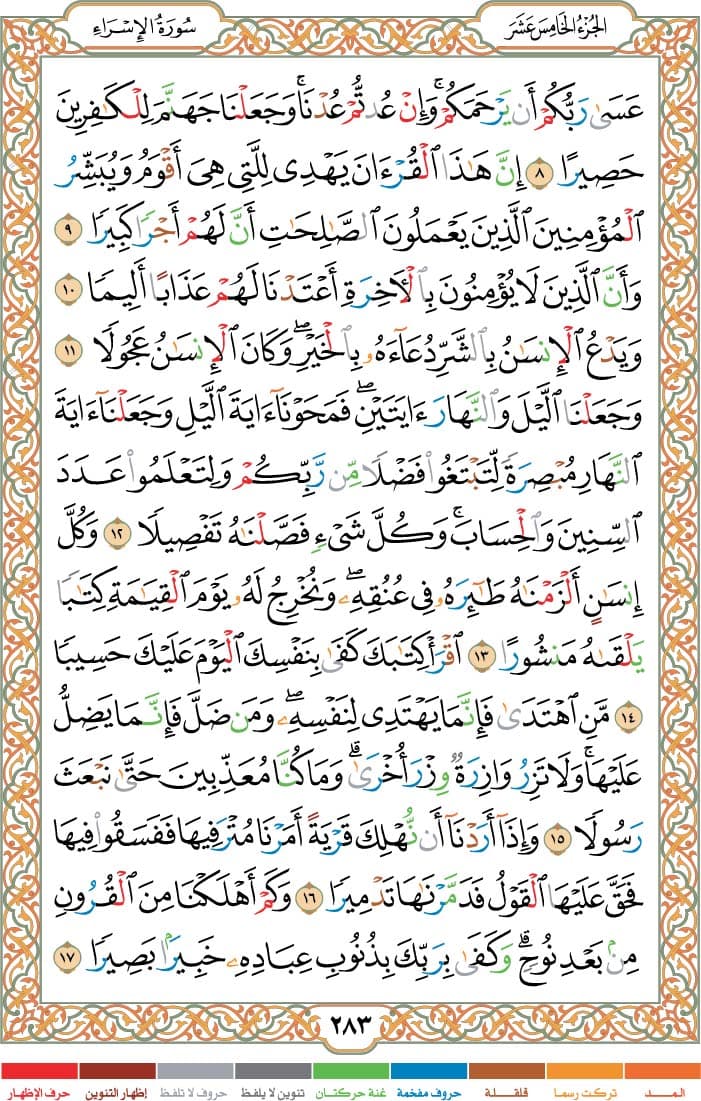 الجُزْءُ الخَامِسَ عَشَرَ
سُورَةُ الإِسْرَاءِ
عَسَىٰ رَبُّكُمْ أَن يَرْحَمَكُمْ ۚ وَإِنْ عُدتُّمْ عُدْنَا ۘ وَجَعَلْنَا جَهَنَّمَ لِلْكَٰفِرِينَ
حَصِيرًا ٨ إِنَّ هَٰذَا ٱلْقُرْءَانَ يَهْدِى لِلَّتِى هِىَ أَقْوَمُ وَيُبَشِّرُ
ٱلْمُؤْمِنِينَ ٱلَّذِينَ يَعْمَلُونَ ٱلصَّٰلِحَٰتِ أَنَّ لَهُمْ أَجْرًا كَبِيرًا ٩
وَأَنَّ ٱلَّذِينَ لَا يُؤْمِنُونَ بِٱلْءَاخِرَةِ أَعْتَدْنَا لَهُمْ عَذَابًا أَلِيمًا ١٠
وَيَدْعُ ٱلْإِنسَٰنُ بِٱلشَّرِّ دُعَآءَهُۥ بِٱلْخَيْرِ ۖ وَكَانَ ٱلْإِنسَٰنُ عَجُولًا ١١
وَجَعَلْنَا ٱلَّيْلَ وَٱلنَّهَارَ ءَايَتَيْنِ ۖ فَمَحَوْنَآ ءَايَةَ ٱلَّيْلِ وَجَعَلْنَآ ءَايَةَ
ٱلنَّهَارِ مُبْصِرَةً لِّتَبْتَغُوا۟ فَضْلًا مِّن رَّبِّكُمْ وَلِتَعْلَمُوا۟ عَدَدَ
ٱلسِّنِينَ وَٱلْحِسَابَ ۚ وَكُلَّ شَىْءٍ فَصَّلْنَٰهُ تَفْصِيلًا ١٢ وَكُلَّ
إِنسَٰنٍ أَلْزَمْنَٰهُ طَٰٓئِرَهُۥ فِى عُنُقِهِۦ ۖ وَنُخْرِجُ لَهُۥ يَوْمَ ٱلْقِيَٰمَةِ كِتَٰبًا
يَلْقَىٰهُ مَنشُورًا ١٣ ٱقْرَأْ كِتَٰبَكَ كَفَىٰ بِنَفْسِكَ ٱلْيَوْمَ عَلَيْكَ حَسِيبًا
١٤ مَّنِ ٱهْتَدَىٰ فَإِنَّمَا يَهْتَدِى لِنَفْسِهِۦ ۖ وَمَن ضَلَّ فَإِنَّمَا يَضِلُّ
عَلَيْهَا ۚ وَلَا تَزِرُ وَازِرَةٌ وِزْرَ أُخْرَىٰ ۗ وَمَا كُنَّا مُعَذِّبِينَ حَتَّىٰ نَبْعَثَ
رَسُولًا ١٥ وَإِذَآ أَرَدْنَآ أَن نُّهْلِكَ قَرْيَةً أَمَرْنَا مُتْرَفِيهَا فَفَسَقُوا۟ فِيهَا
فَحَقَّ عَلَيْهَا ٱلْقَوْلُ فَدَمَّرْنَٰهَا تَدْمِيرًا ١٦ وَكَمْ أَهْلَكْنَا مِنَ ٱلْقُرُونِ
مِنۢ بَعْدِ نُوحٍ ۗ وَكَفَىٰ بِرَبِّكَ بِذُنُوبِ عِبَادِهِۦ خَبِيرًۢا بَصِيرًا ١٧
٢٨٣
المــــد تركت رسما قلقـــلة حروف مفخمة غنة حركتان تنوين لا يلفظ حروف لا تلفظ إظهار التنوين حرف الإظهار